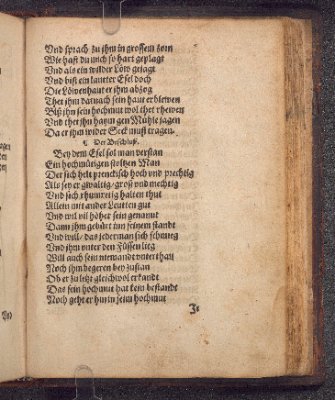 Vnd sprach zu jhm in grossem zorn
Wie hast du mich so hart geplagt
Vnd als ein wilder Löw gejagt
Vnd bist ein lautter Esel doch
Die Löwenhaut er jhm abzog
Thet jhm darnach sein haut erblewen
Biß jhm sein hochmut wol thet rhewen
Vnd thet jhn haym gen Mühle jagen
Da er jhm wider Seck must tragen.
¶ Der Beschluß.
Bey dem Esel sol man verstan
Ein hochmütigen stoltzen Man
Der sich helt prencksich hoch vnd prechtig
Als sey er gwaltig/ groß vnd mechtig
Vnd sich rhumreitig halten thut
Allein mit ander Leutten gut
Vnd wil vil höher sein genannt
Dann jhm gebürt inn seinem standt
Vnd will/ das jederman sich schmieg
Vnd jhm vnter den Füssen lieg
Will auch sein niemandt vnterthan
Noch jhm begeren bey zustan
Ob er zu letzt gleich wol erkandt
Das sein hochmut hat kein bestandt
Noch geht er hin in seim hochmut